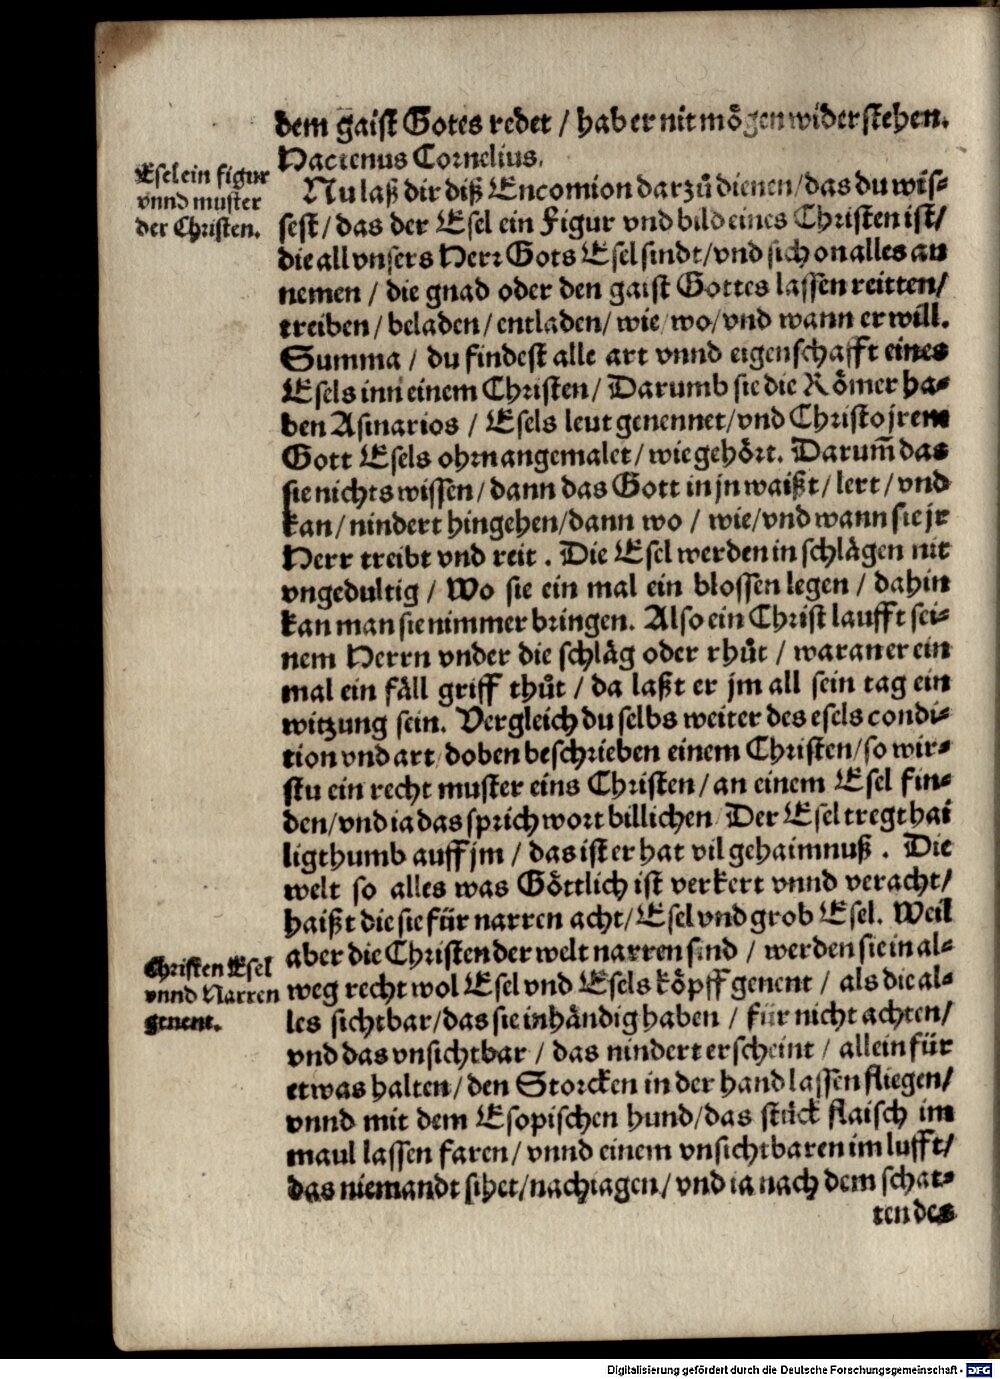 dem gaist Gotes redet / hab er nit mögen widerstehen.
Hactenus Cornelius.
Esel ein figur
vnnd muster
der Christen.
Nu laß dir diß Encomion darzů dienen/das du wis-
sest/das der Esel ein Figur vnd bild eines Christen ist/
die all vnsers Herr Gots Esel sindt/vnd sich on alles an
nemen / die gnad oder den gaist Gottes lassen reitten/
treiben/beladen/entladen/wie/wo/vnd wann er will.
Summa / du findest alle art vnnd eigenschafft eines
Esels inn einem Christen/Darumb sie die Römer ha-
ben Asinarios / Esels leut genennet/vnd Christo jrem
Gott Esels ohrn angemalet/wie gehört. Darum̃ das
sie nichts wissen/dann das Gott in jn waißt/lert/vnd
kan/nindert hingehen/dann wo / wie/vnd wann sie jr
Herr treibt vnd reit . Die Esel werden in schlägen nit
vngedultig / Wo sie ein mal ein blossen legen / dahin
kan man sie nimmer bringen. Also ein Christ laufft sei-
nem Herrn vnder die schläg oder rhůt / waran er ein
mal ein fäll griff thůt / da laßt er jm all sein tag ein
witzung sein. Vergleich du selbs weiter des esels condi-
tion vnd art/doben beschrieben einem Christen/so wir-
stu ein recht muster eins Christen/an einem Esel fin-
den/vnd ia das sprichwort billichen/Der Esel tregt hai
ligthumb auff jm / das ist er hat vil gehaimnuß . Die
welt so alles was Göttlich ist verkert vnnd veracht/
haißt die sie für narren acht/Esel vnd grob Esel. Weil
aber die Christen der welt narren sind / werden sie in al-
Christen Esel
vnnd Narren
genent.
weg recht wol Esel vnd Esels köpff genent / als die al-
les sichtbar/das sie inhändig haben / für nicht achten/
vnd das vnsichtbar / das nindert erscheint / allein für
etwas halten/den Storcken in der hand lassen fliegen/
vnnd mit dem Esopischen hund/das stück flaisch im
maul lassen faren/vnnd einem vnsichtbaren im lufft/
das niemandt sihet/nachiagen/vnd ia nach dem schat-
ten des
Digitalisierung gefördert durch die Deutsche Forschungsgemeinschaft - DFG